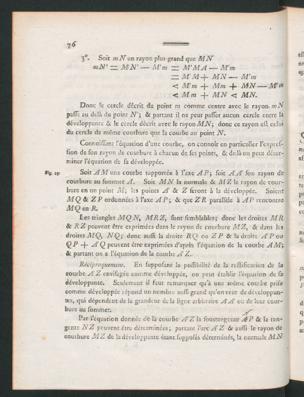 76
3°. Soit mN un rayon plus grand que MN
mN' = MN' — M'm = M'MA — M'm
= M'M + MN — M'm
< Mm + Mm + MN — M'm
< Mm + MN < MN.
Donc le cercle décrit du point m comme centre avec le rayon mN
passe au delà du point N'; & partant il ne peut passer aucun cercle entre la
développante & le cercle décrit avec le rayon MN; donc ce rayon est celui
du cercle de même courbure que la courbe au point N.
Connoissant l'équation d'une courbe, on connoit en particulier l'expres-
sion de son rayon de courbure à chacun de ses points, & de là on peut déter-
miner l'équation de sa développée.
Fig. 29. Soit AM une courbe rapportée à l'axe AP; soit AA son rayon de
courbure au sommet A. Soit MN la normale & MZ le rayon de cour-
bure en un point M; les points A & Z seront à la développée. Soient
MQ & ZP ordonnées à l'axe AP; & que ZR parallèle à AP rencontre
MQ en R.
Les triangles MQN, MRZ, sont semblables; donc les droites MR
& RZ peuvent être exprimées dans le rayon de courbure MZ, & dans les
droites MQ, NQ; donc aussi la droite RQ ou ZP & la droite AP ou
QP + AQ peuvent être exprimées d'après l'équation de la courbe AM;
& partant on a l'équation de la courbe AZ.
Réciproquement. En supposant la possibilité de la rectification de la
courbe AZ envisagée comme développée, on peut établir l'équation de sa
développante. Seulement il faut remarquer qu'à une même courbe prise
comme développée répond un nombre aussi grand qu'on veut de développan-
tes, qui dépendent de la grandeur de la ligne arbitraire AA ou de leur cour-
bure au sommet.
Par l'équation donnée de la courbe AZ la soustangente AP & la tan-
gente NZ peuvent être déterminées; partant l'arc AZ & aussi le rayon de
courbure MZ de la développante étant supposés déterminés, la normale MN